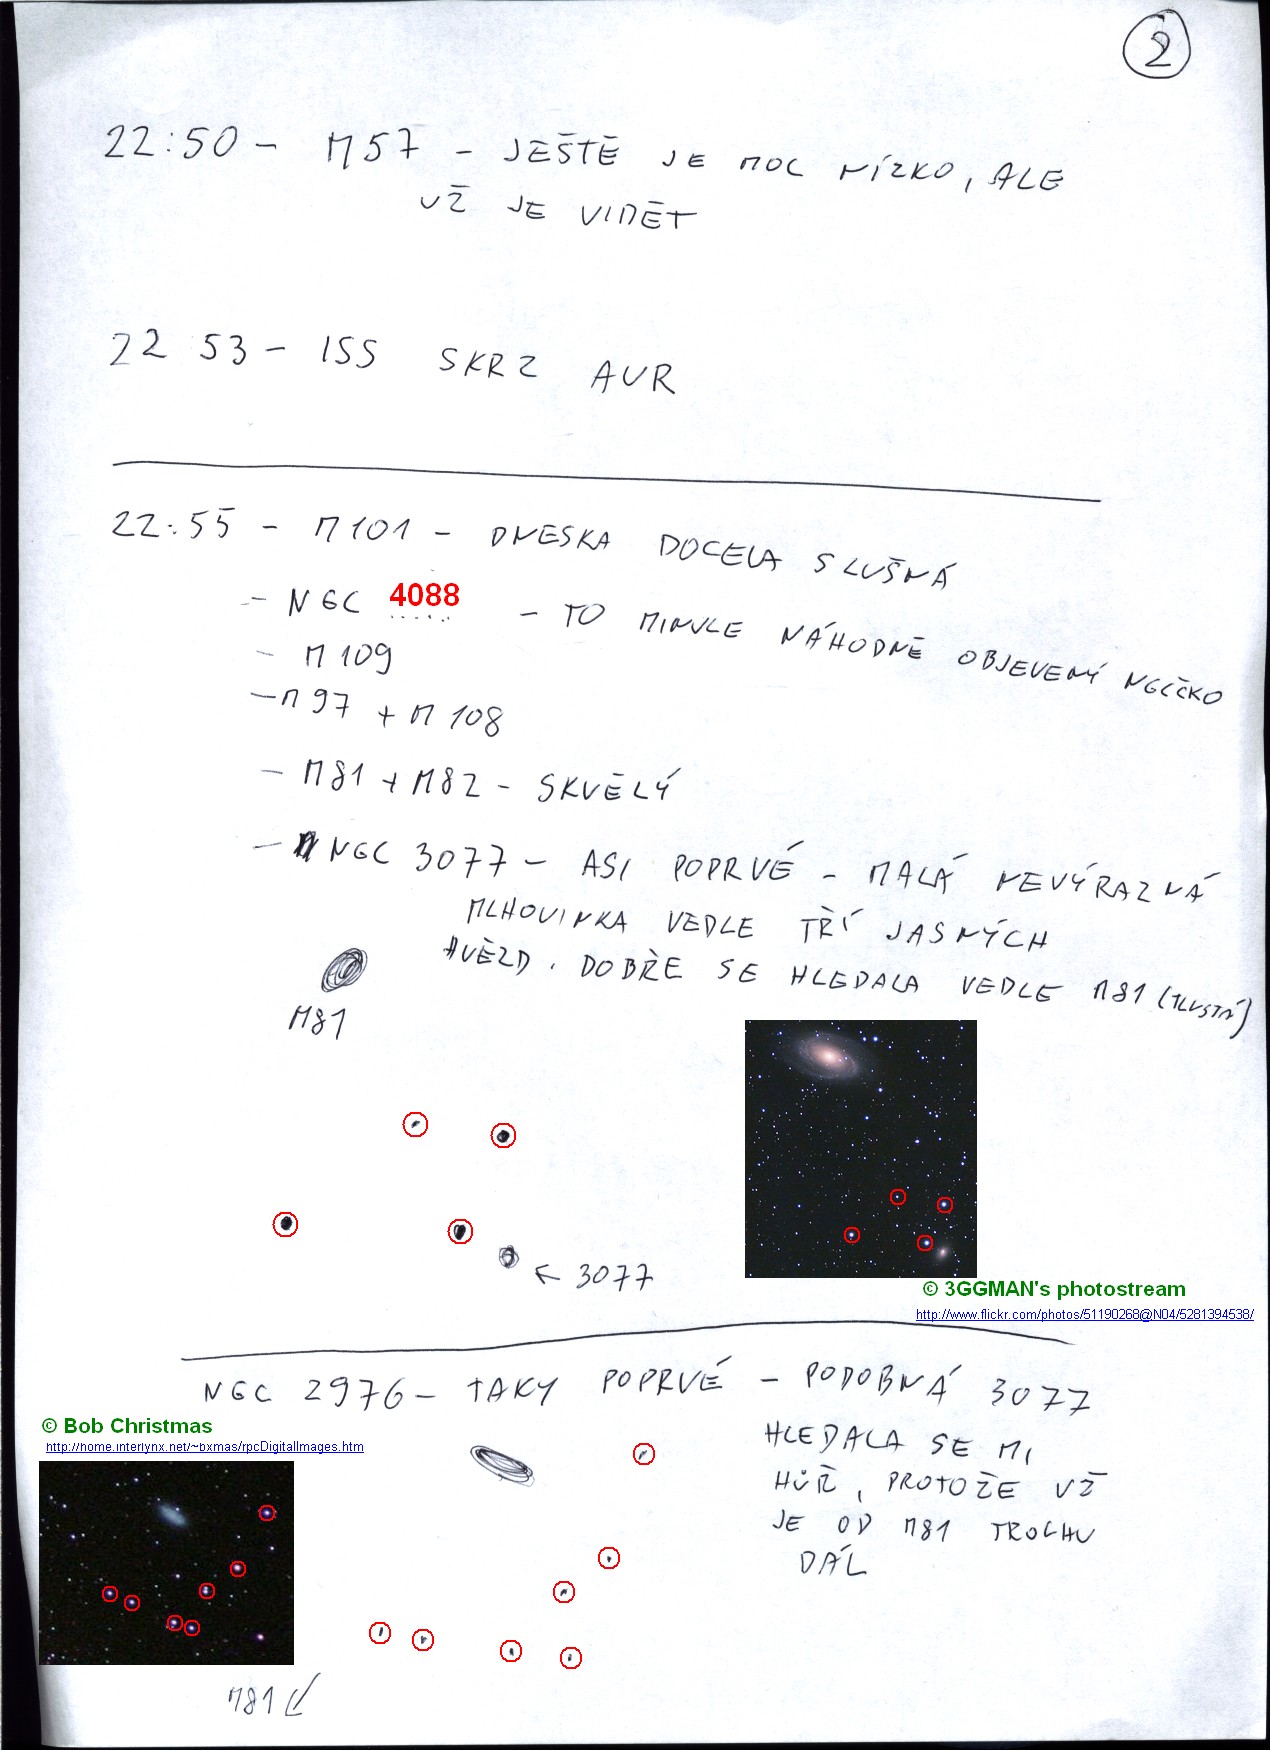 2
22:50 - M57 - JEŠTĚ JE MOC NÍZKO, ALE
UŽ JE VIDĚT
22 53 - ISS SKRZ AUR
22:55 - M101 - DNESKA DOCELA SLUŠNÁ
- NGC 4088 - TO MINULE NÁHODNĚ OBJEVENÝ NGCČKO
- M109
- M97 + M108
- M81 + M82 - SKVĚLÝ
- NGC 3077 - ASI POPRVÉ - MALÁ NEVÝRAZNÁ
MLHOVINKA VEDLE TŘÍ JASNÝCH
HVĚZD. DOBŘE SE HLEDALA VEDLE M81 (TLUSTÁ)
M81
← 3077
© 3GGMAN's photostream
http://www.flickr.com/photos/51190268@N04/5281394538/
NGC 2976 - TAKY POPRVÉ - PODOBNÁ 3077
HLEDALA SE MI
HŮŘ, PROTOŽE UŽ
JE OD M81 TROCHU
DÁL
© Bob Christmas
http://home.interlynx.net/~bxmas/rpcDigitalImages.htm
M81